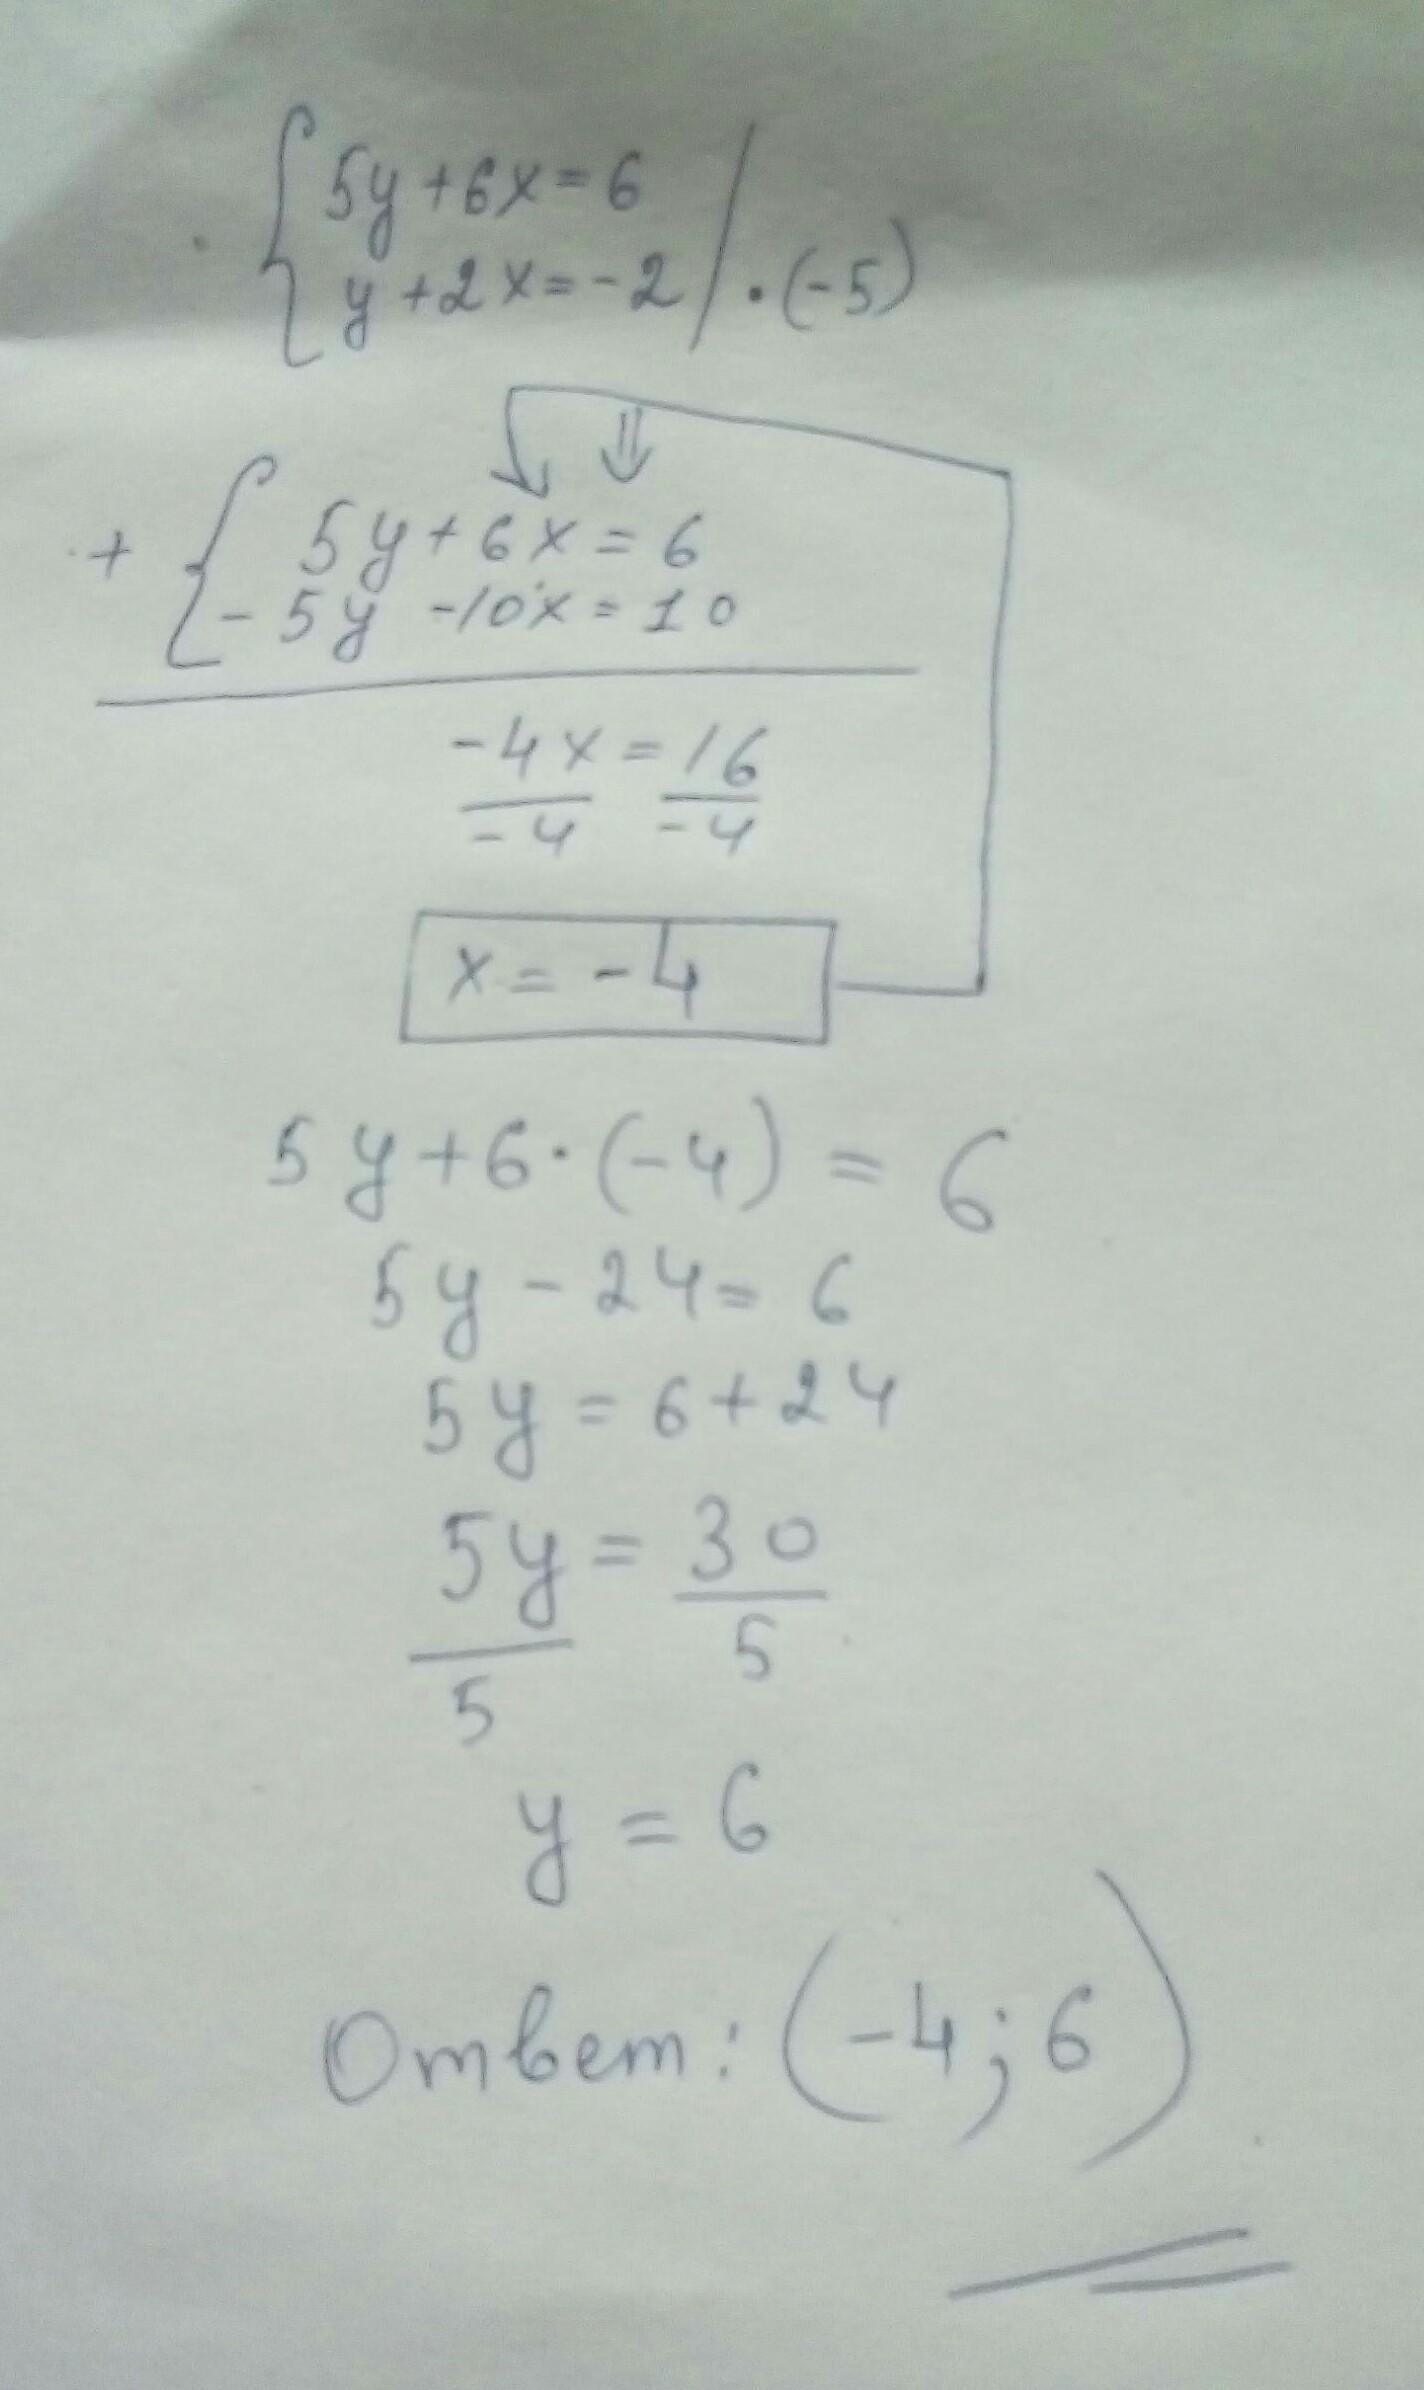 5y+6x=6
y+2x=-2 / ·(-5)
+ 5y+6x=6
-5y -10x=10
-4x=16
-4 -4
x=-4
5y+6·(-4)=6
5y-24=6
5y=6+24
5y=30
5 5
y=6
Ответ: (-4;6)